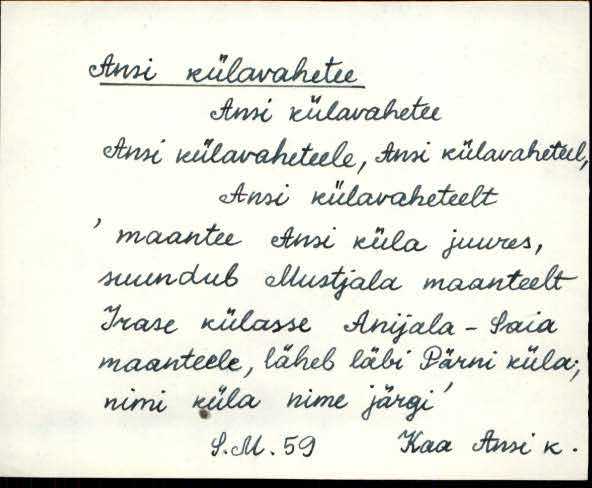 Ansi külavahetee
Ansi külavahetee
Ansi külavaheteele, Ansi külavaheteel,
Ansi külavaheteelt
' maantee Ansi küla juures,
suundub Mustjala maanteelt
Irase külasse Anijala - Saia
maanteele, läheb läbi Pärni küla;
nimi küla nime järgi'
S.M. 59 Kaa Ansi k.